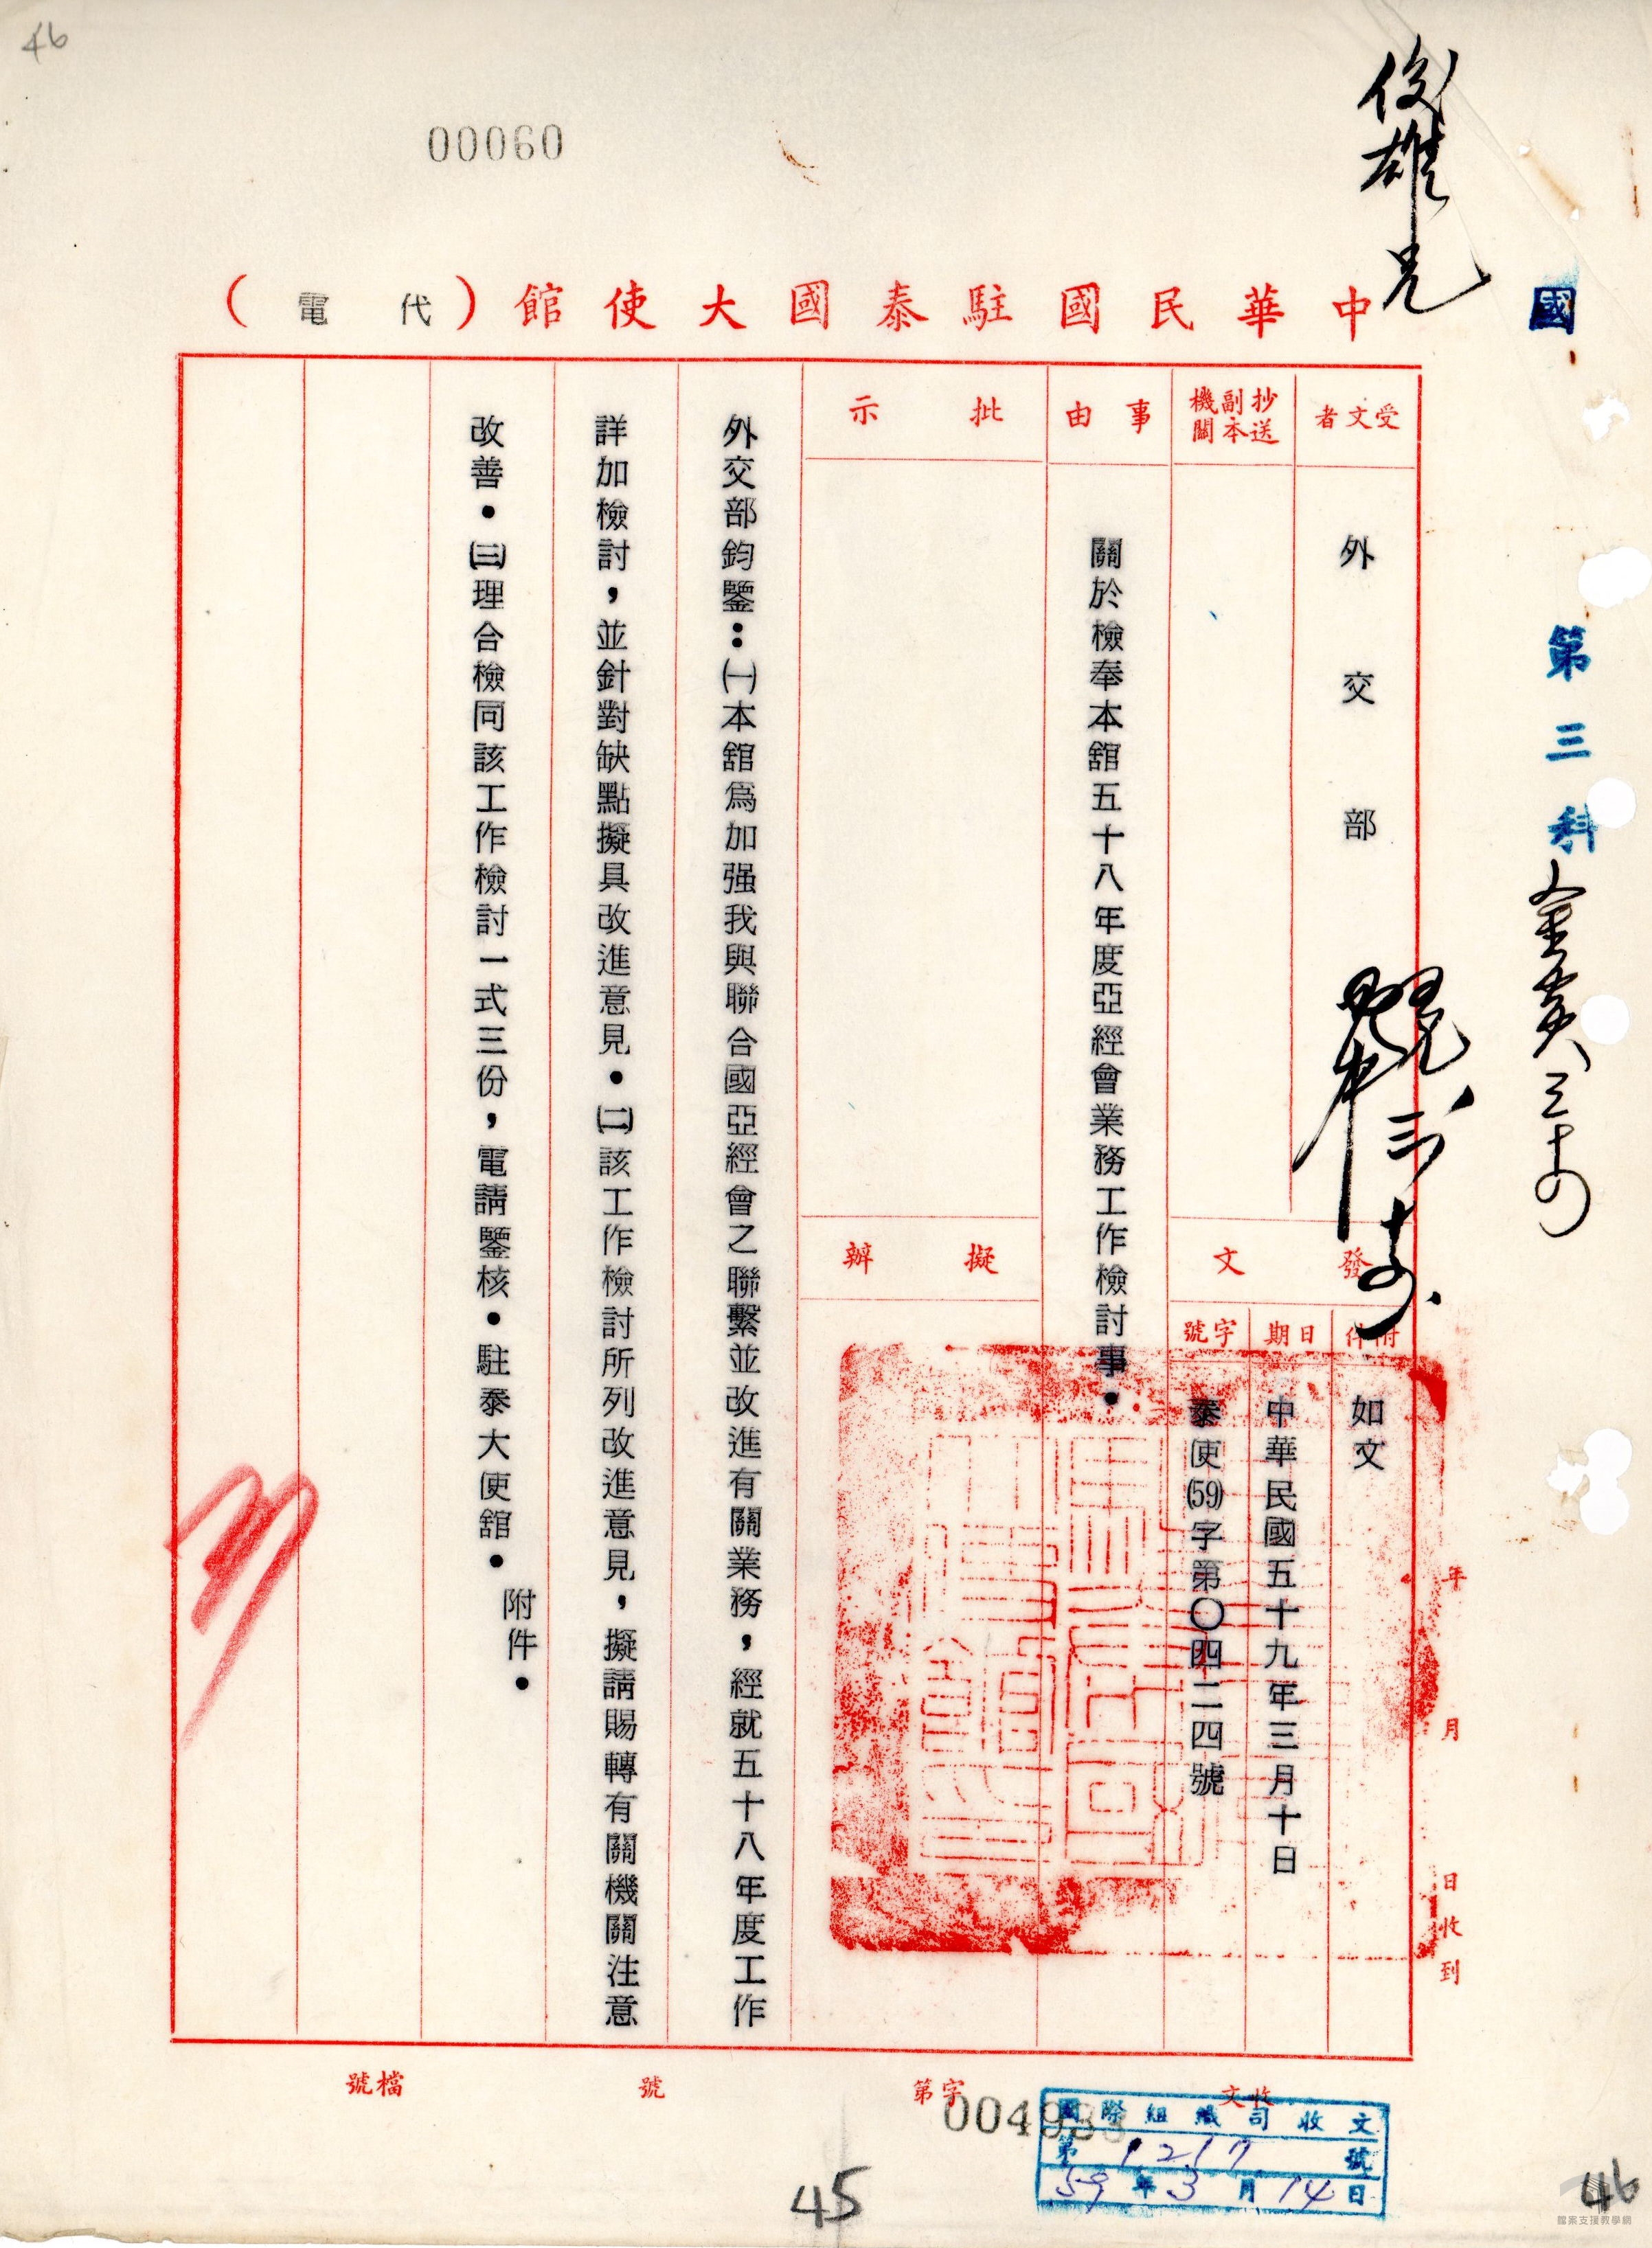 46
00060
俊雄兄
國
第三科
中華民國駐泰國大使館（代電）
受文者
外交部
抄送副本機關
事由
關於檢奉本舘五十八年度亞經會業務工作檢討事．
批示
擬辦
發文
附件
如文
日期
中華民國五十九年三月十日
字號
泰使(59)字第〇四二四號
外交部鈞鑒：㈠本舘爲加强我與聯合國亞經會之聯繫並改進有關業務，經就五十八年度工作
詳加檢討，並針對缺點擬具改進意見．㈡該工作檢討所列改進意見，擬請賜轉有關機關注意
改善．㈢理合檢同該工作檢討一式三份，電請鑒核．駐泰大使舘．
附件．
年月日收到
收文
字第
號
檔號
國際組織司收文
第1217號
59年3月14日
45
46
檔案支援教學網